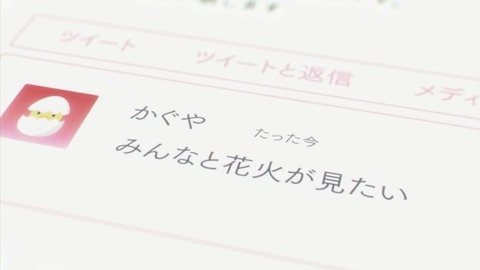 ツイート ツイートと返信 メディ
かぐや たった今
みんなと花火が見たい